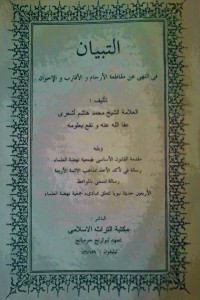 التبيان
فى النهي عن مقاطعة الأرحام و الأقارب و الإخوان
تأليف :
العلامة الشيخ محمد هاشم أشعري
عفا الله عنه و نفع بعلومه
ويليه
مقدمة القانون الأساسي لجمعية نهضة العلماء
رسالة فى تأكد الأخذ بمذاهب الأئمة الأربعة
رسالة تسمى بالمواعظ
الأربعين حديثا نبويا تتعلق بمبادىء لجمعية نهضة العلماء
الناشر
مكتبة التراث الاسلامى
تبوايرنج جومبانج